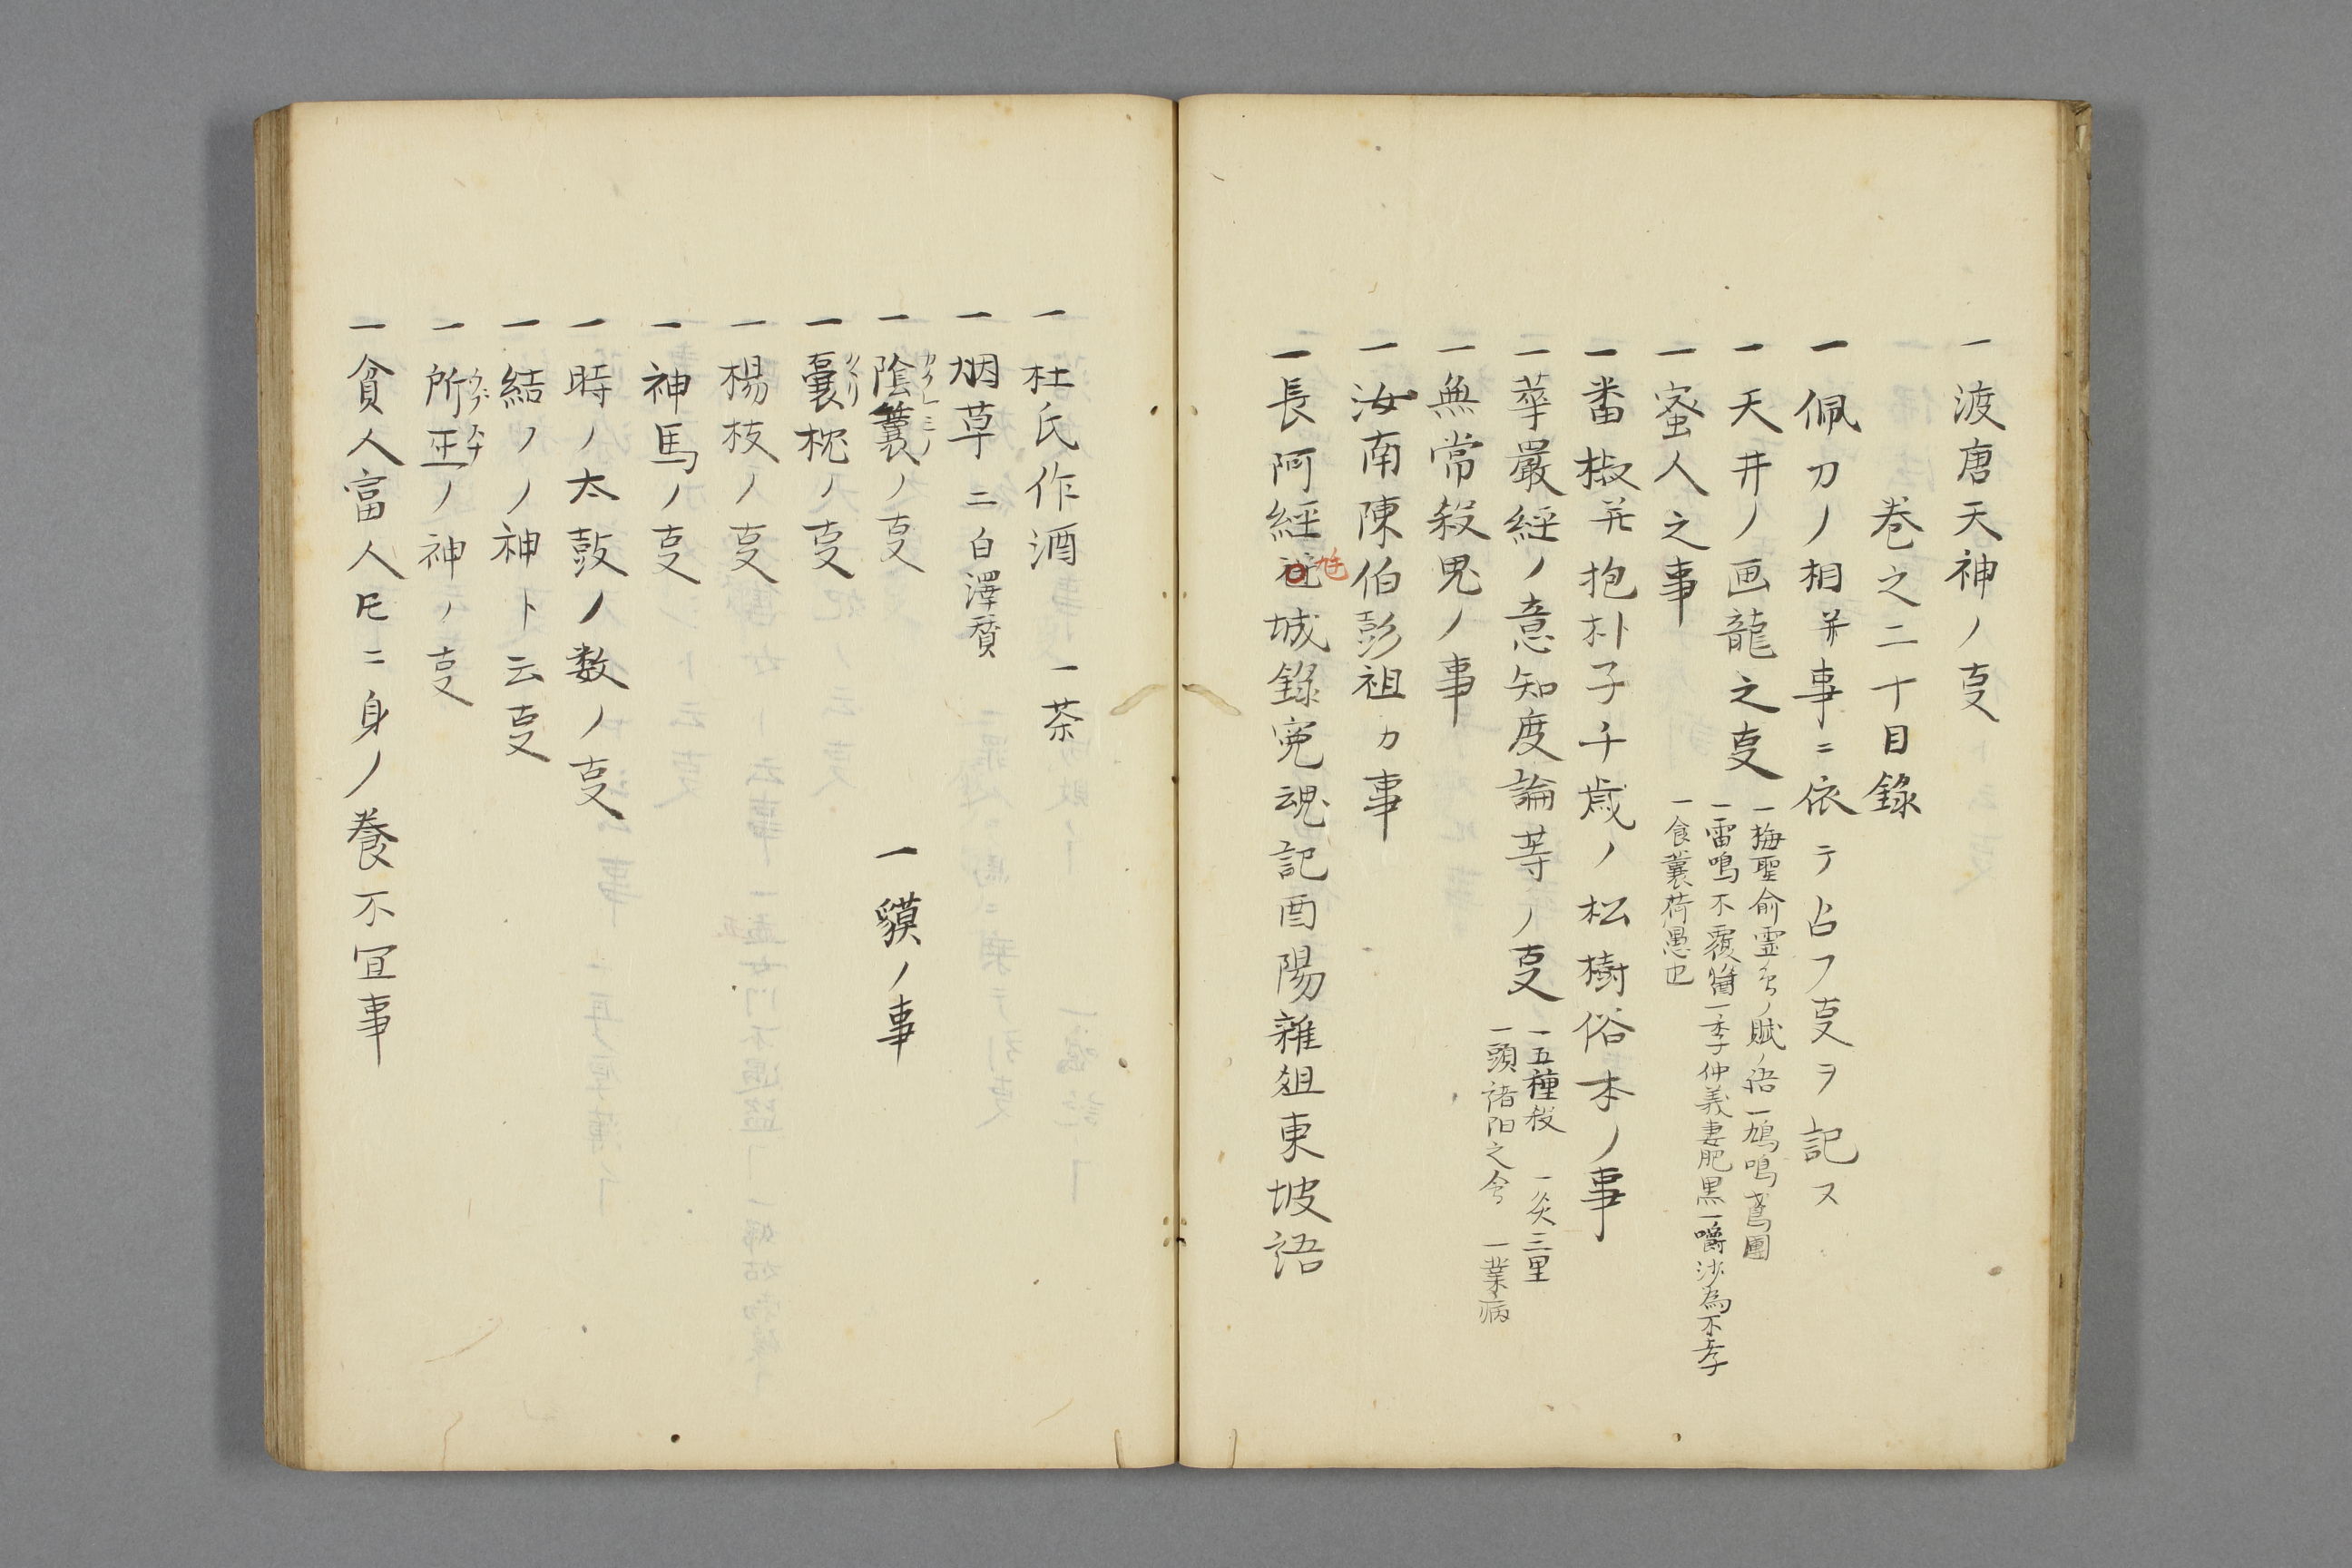 一渡唐天神ノ叓
巻之二十目錄
一佩刀ノ相并事ニ依テ占フ叓ヲ記ス
一天井ノ画龍之叓
一梅聖俞霊烏ノ賦ノ語一鳩鳴鳶團
一雷鳴不覆醤一季仲義妻肥黒一嚼沙為不孝
一食蘘荷愚也
一蜜人之事
一番椒并抱朴子千歳ノ松樹俗本ノ事
一華嚴經ノ意知度論等ノ叓
一五種殺 一灸三里
一頭諸陽之會 一業病
一無常殺鬼ノ事
一汝南陳伯彭祖カ事
一長阿經 城錄寃魂記酉陽雜俎東坡語
一杜氏作酒 一茶
一烟草ニ白澤賛
一陰蘘ノ叓 一貘ノ事
一囊枕ノ叓
一楊枝ノ叓
一神馬ノ叓
一時ノ太鼓ノ数ノ叓
一結ノノ神ト云叓
一所生ノ神ノ叓
一貧人富人ニ身ノ養不宜事